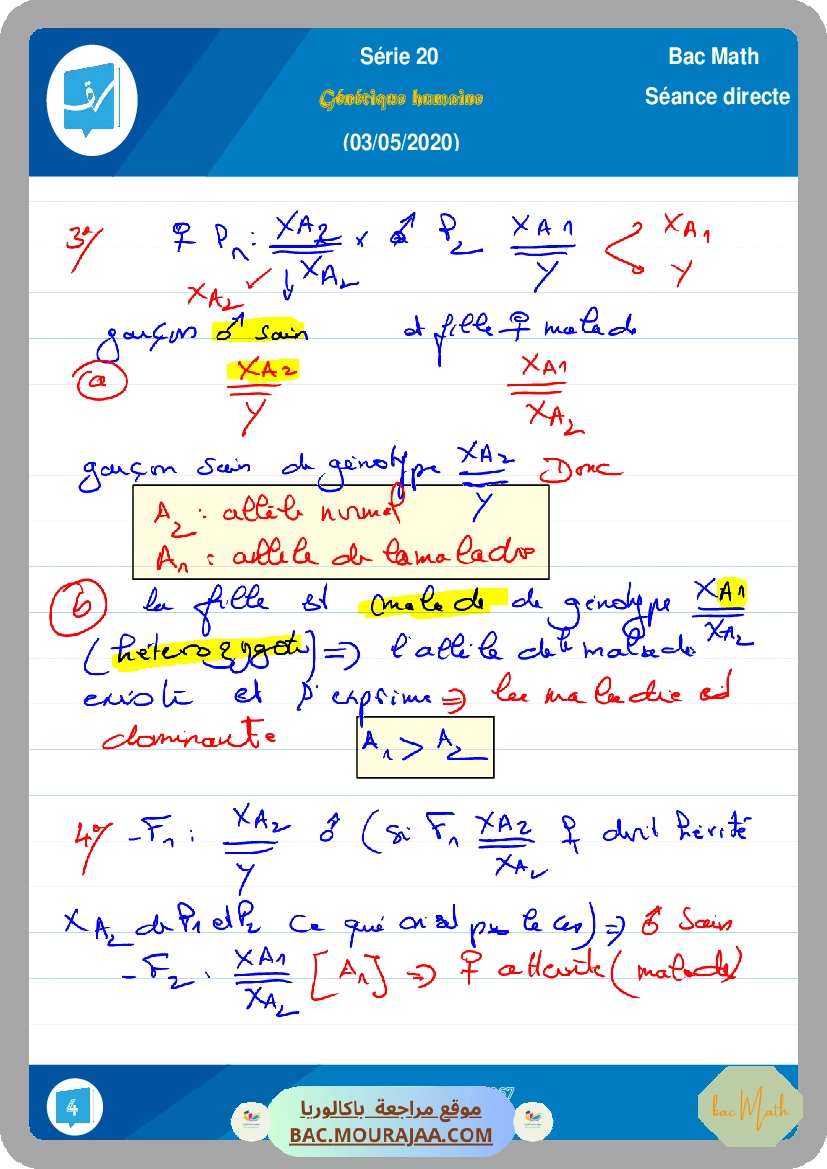 Série 20
Bac Math
Génétique humaine
Séance directe
(03/05/2020)
3°/ ♀ P1 : XA2 // XA2 × ♂ P2 XA1 // Y < XA1
Y
XA2 ✓ ↓
garçon ♂ sain et fille ♀ malade
a XA2 // Y XA1 // XA2
garçon sain de génotype XA2 // Y Donc
A2 : allèle normal
A1 : allèle de la maladie
b la fille est malade de génotype XA1 // XA2
(hétérozygote) ⇒ l'allèle de la maladie
existe et s'exprime ⇒ la maladie est
dominante A1 > A2
4°/ - F1 : XA2 // Y ♂ (si F1 XA2 // XA2 ♀ doit hérité
XA2 de P1 et P2 ce qui n'est pas le cas) ⇒ ♂ Sain
- F2 : XA1 // XA2 [A1] ⇒ ♀ atteinte (malade)
4
موقع مراجعة باكالوريا
BAC.MOURAJAA.COM
bac Math